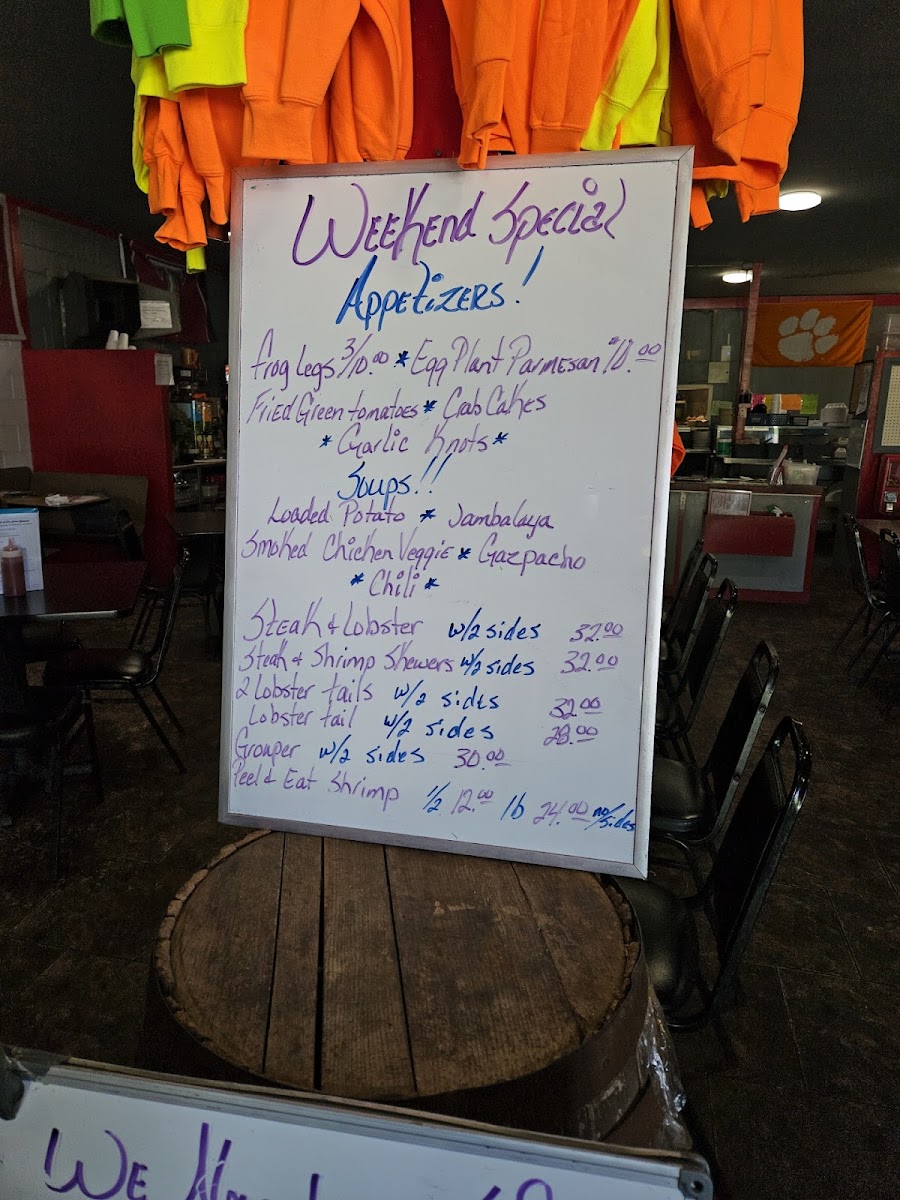 Weekend Special
Appetizers!
frog Legs 3/10.00 * Egg Plant Parmesan $10.00
Fried Green tomatoes * Crab Cakes
* Garlic Knots *
Soups!!
Loaded Potato * Jambalaya
Smoked Chicken Veggie * Gazpacho
* Chili *
Steak & Lobster w/2 sides 32.00
Steak & Shrimp Skewers w/2 sides 32.00
2 Lobster tails w/2 sides 32.00
Lobster tail w/2 sides 28.00
Grouper w/2 sides 30.00
Peel & Eat Shrimp 1/2 12.00 lb 24.00 no/sides
We